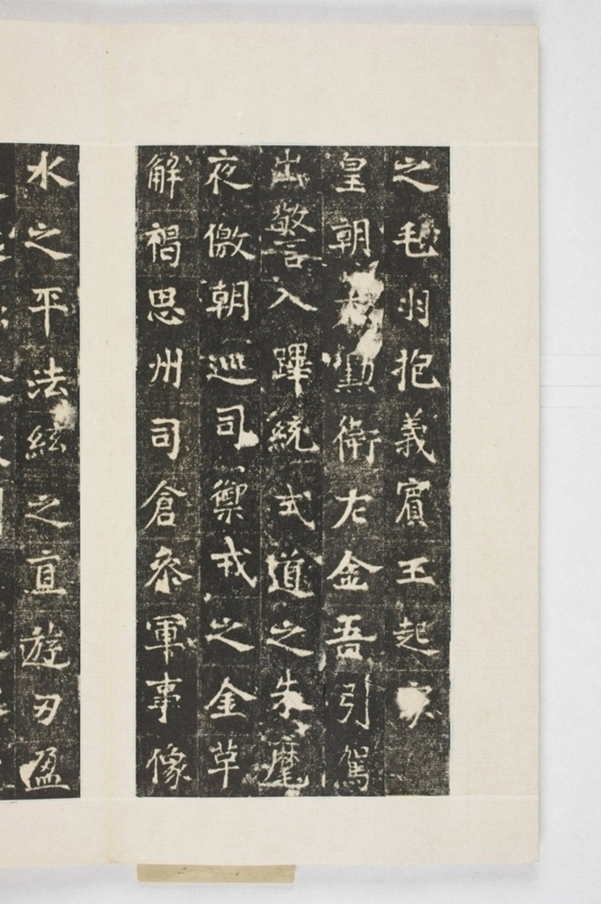 之毛羽抱義賓王起家
皇朝勲衛左金吾引駕
出警入蹕統式道之朱麾
夜徼朝巡司禦戎之金草
解褐思州司倉叅軍事像
水之平法絃之直遊刃盈